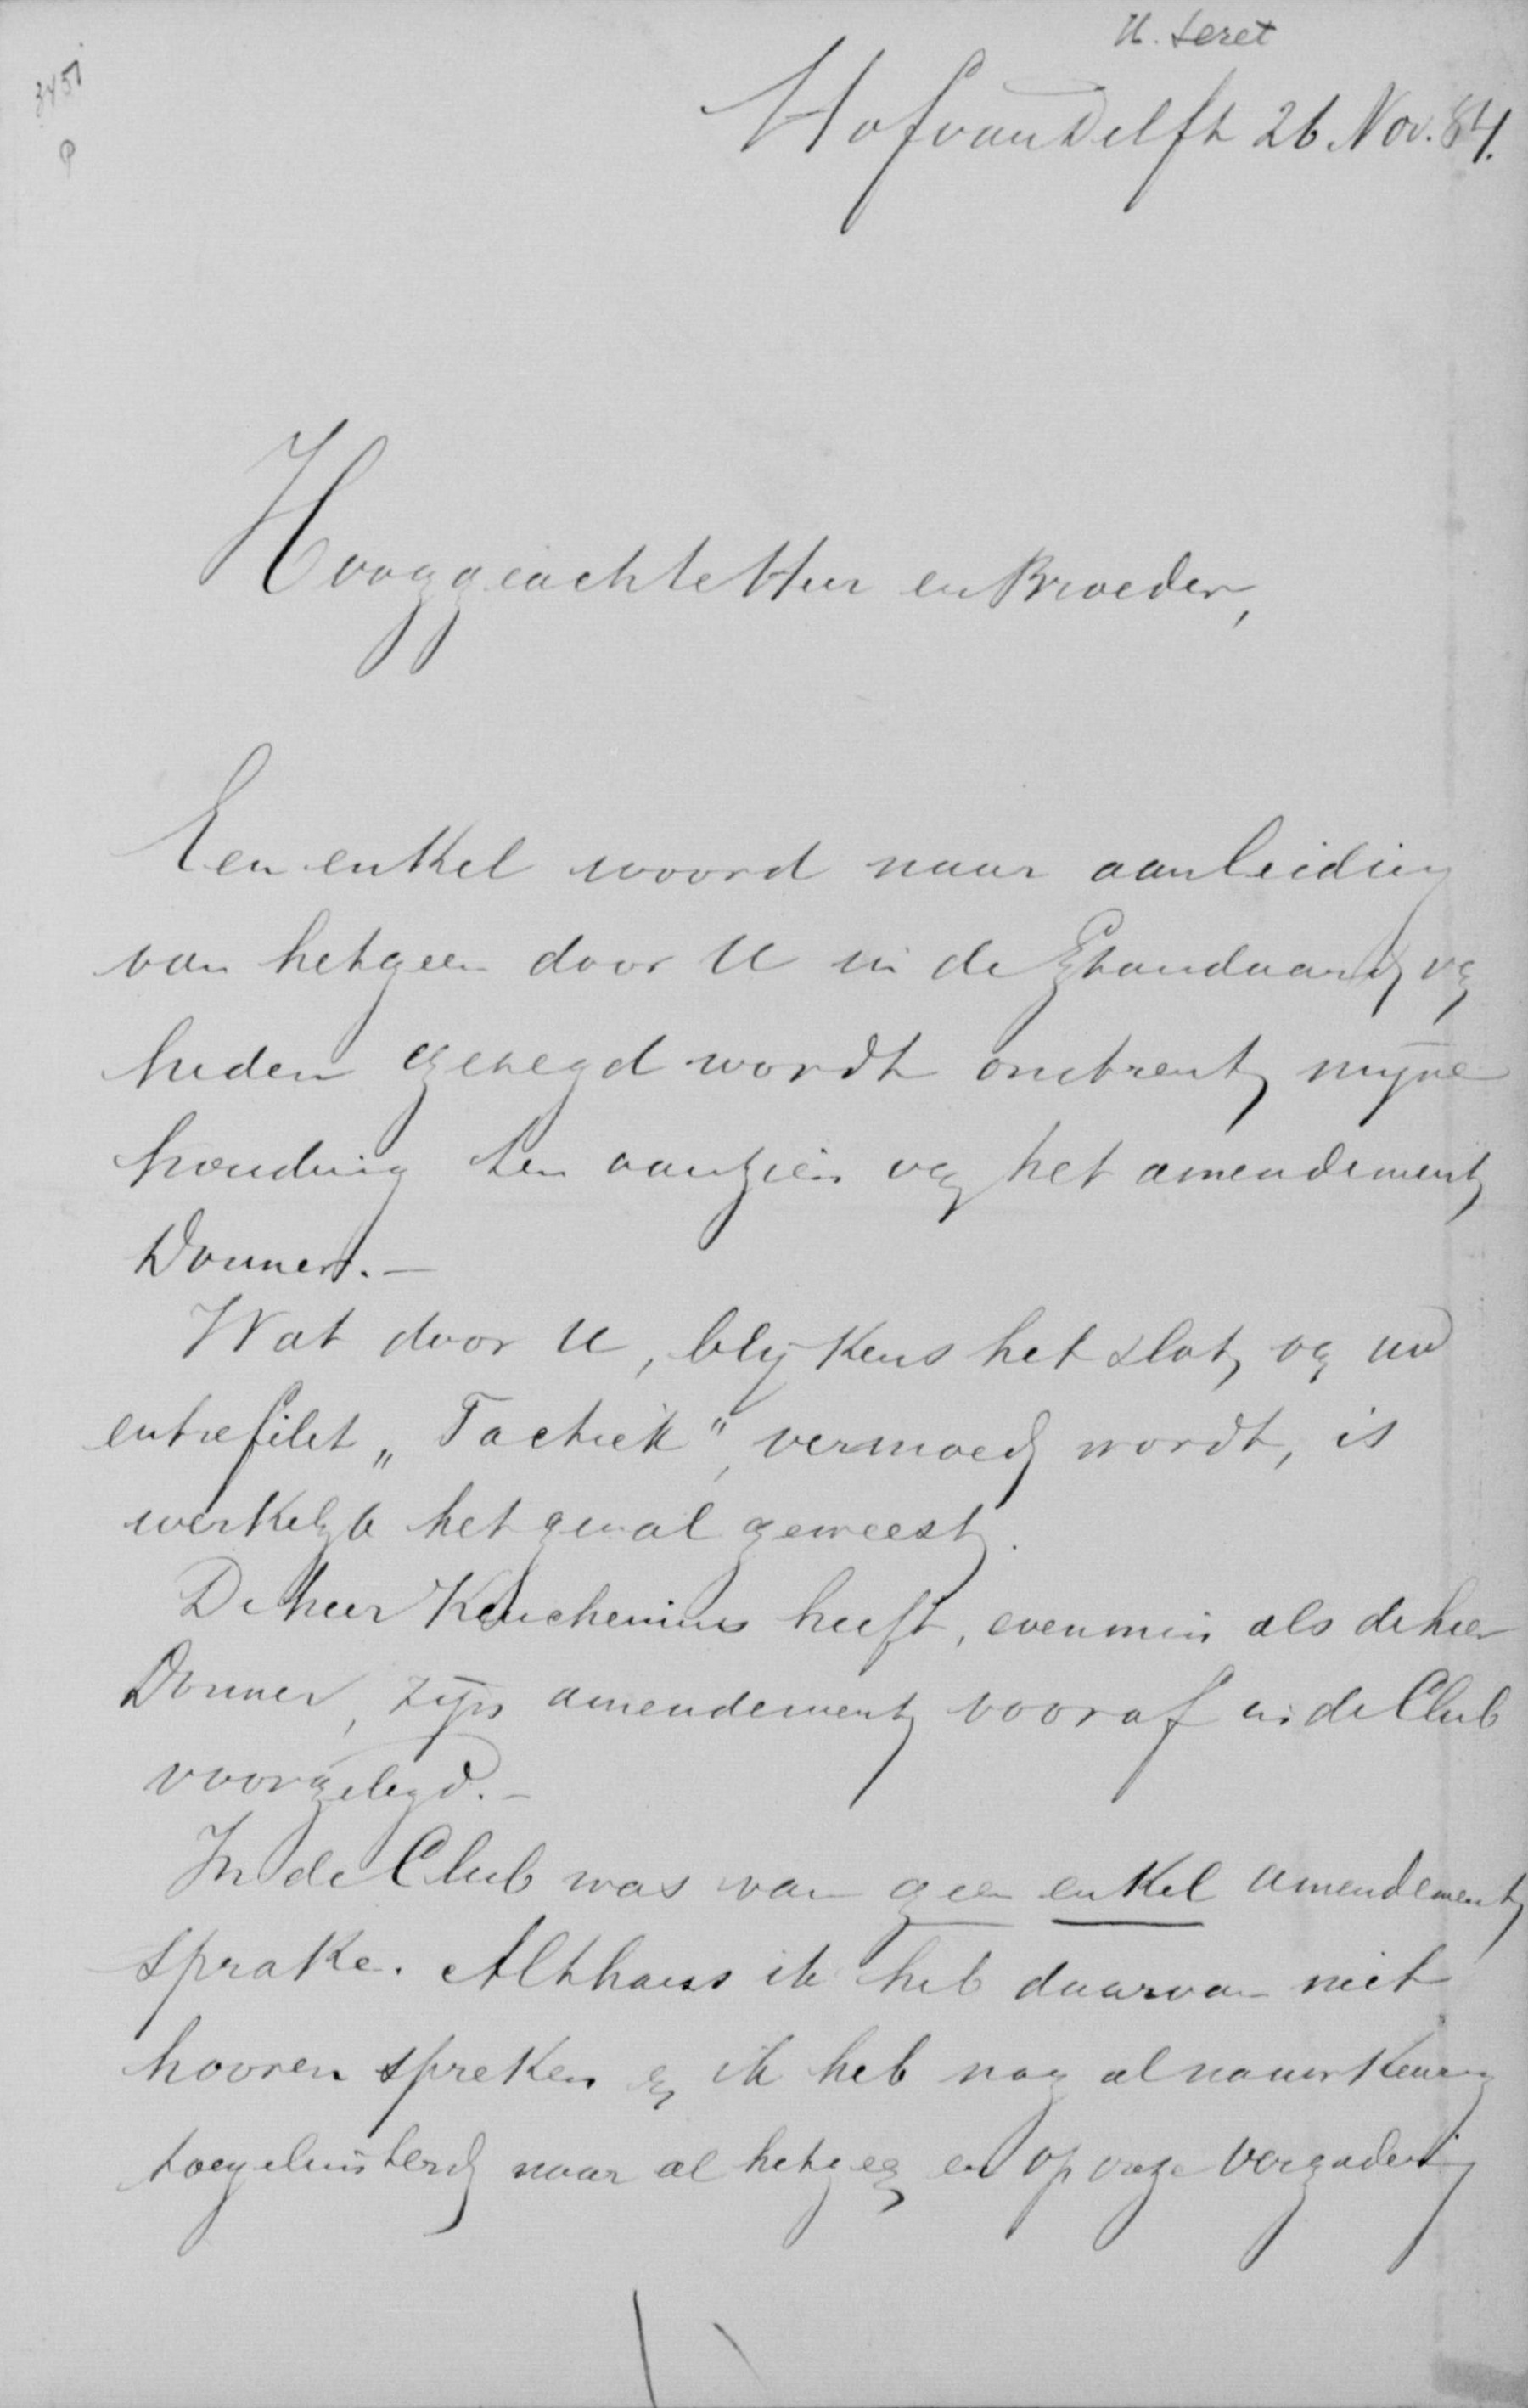 U. Seret
3451
P
Hof van Delft 26 Nov. 84.
Hooggeachte Heer en Broeder,
Een enkel woord naar aanleiding
van hetgeen door U in de Standaard van
heden gezegd wordt omtrent mijne
houding ten aanzien van het amendement
Donner. –
Wat door U, blijkens het slot van uw
entrefilet „Tactiek", vermoed wordt, is
werkelijk het geval geweest.
De heer Keuchenius heeft, evenmin als de heer
Donner, zijn amendement vooraf in de Club
voorgelegd. –
In de Club was van geen enkel amendement
sprake. Althans ik heb daarvan niet
hooren spreken en ik heb nog al nauwkeurig
toegeluisterd naar al hetgeen er op onze vergadering